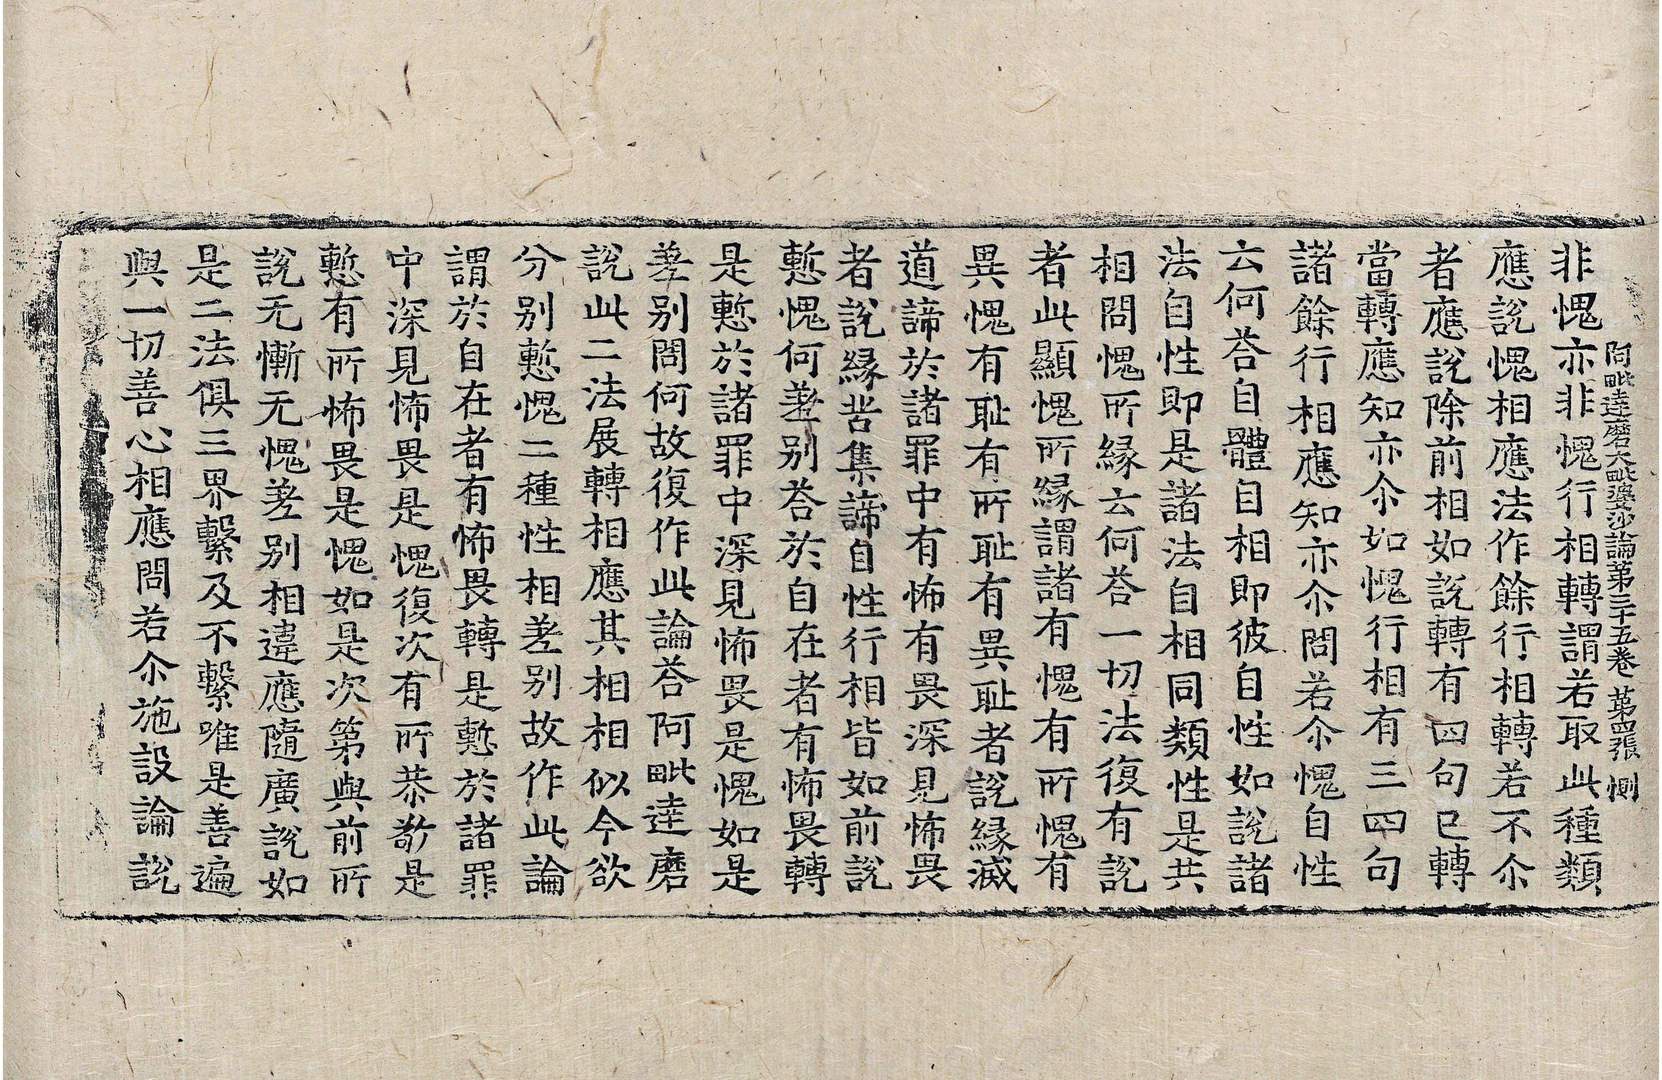 阿毗達磨大毗婆沙論第三十五卷 第四張 惻
非愧亦非愧行相轉謂若取此種類
應說愧相應法作餘行相轉若不尒
者應說除前相如說轉有四句已轉
當轉應知亦尒如愧行相有三四句
諸餘行相應知亦尒問若尒愧自性
云何荅自體自相即彼自性如說諸
法自性即是諸法自相同類性是共
相問愧所緣云何荅一切法復有說
者此顯愧所緣謂諸有愧有所愧有
異愧有恥有所恥有異恥者說緣滅
道諦於諸罪中有怖有畏深見怖畏
者說緣苦集諦自性行相皆如前說
慙愧何差別荅於自在者有怖畏轉
是慙於諸罪中深見怖畏是愧如是
差別問何故復作此論荅阿毗達磨
說此二法展轉相應其相相似今欲
分別慙愧二種性相差別故作此論
謂於自在者有怖畏轉是慙於諸罪
中深見怖畏是愧復次有所恭敬是
慙有所怖畏是愧如是次第與前所
說无慚无愧差別相違應隨廣說如
是二法俱三界繫及不繫唯是善遍
與一切善心相應問若尒施設論說